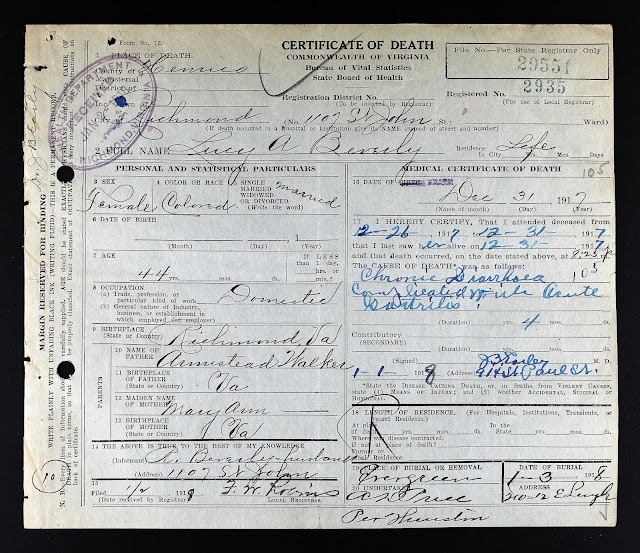 Form No. 12.
1 PLACE OF DEATH.
County of Henrico
Magisterial
District of
Inc. Town
City of Richmond 1107 St John St.; Ward)
(If death occurred in a Hospital or Institution give its NAME instead of street and number)
CERTIFICATE OF DEATH
COMMONWEALTH OF VIRGINIA
Bureau of Vital Statistics
State Board of Health
Registration District No.
(To be inserted by Registrar)
File No.—For State Registrar Only
29551
2935
Registered No.
(For use of Local Registrar)
2 FULL NAME Lucy A Beverly Residence In City Life Yrs. Mos. Days
PERSONAL AND STATISTICAL PARTICULARS
3 SEX Female
4 COLOR OR RACE Colored
5 SINGLE MARRIED WIDOWED OR DIVORCED (Write the word) married
6 DATE OF BIRTH
(Month) (Day) (Year)
7 AGE
44 yrs. mos. ds.
If LESS than 1 day, hrs. or min.?
8 OCCUPATION
(a) Trade, profession, or particular kind of work Domestic
(b) General nature of Industry, business, or establishment in which employed (or employer)
9 BIRTHPLACE
(State or Country) Richmond, Va
PARENTS
10 NAME OF FATHER Armistead Walker
11 BIRTHPLACE OF FATHER
(State or Country) Va
12 MAIDEN NAME OF MOTHER Mary Ann
13 BIRTHPLACE OF MOTHER
(State or Country) Va
14 THE ABOVE IS TRUE TO THE BEST OF MY KNOWLEDGE
(Informant) R. Beverly-husband
(Address) 1107 St John
15
1/2 1918 F. W.
(Date received by Registrar) LOCAL REGISTRAR.
MEDICAL CERTIFICATE OF DEATH
16 DATE OF DEATH
Dec 31 1917
(Name of month) (Day) (Year)
105
17 I HEREBY CERTIFY, That I attended deceased from
12-26 1917, 12-31- 1917
that I last saw her alive on 12-31- 1917
and that death occurred, on the date stated above, at 8:25 P
The CAUSE OF DEATH* was as follows:
105
Chronic Diarrhoea
Complicated with Acute
Gastritis.
(Duration) yrs. 4 mos. ds.
Contributory
(Secondary)
(Duration) yrs. mos. ds.
(Signed) M. D.
1-1- 1918 (Address) St Paul St.
*State the DISEASE CAUSING DEATH, or, in deaths from VIOLENT CAUSES, state (1) MEANS OF INJURY; and (2) whether ACCIDENTAL, SUICIDAL or HOMICIDAL.
18 LENGTH OF RESIDENCE. (For Hospitals, Institutions, Transients, or Recent Residents.)
Where was disease contracted, if not at place of death?
Former or usual Residence
19 PLACE OF BURIAL OR REMOVAL Evergreen
DATE OF BURIAL 1-3 1918
20 UNDERTAKER A D Price
ADDRESS 210-12 E Leigh
Per Houston
MARGIN RESERVED FOR BINDING
WRITE PLAINLY WITH UNFADING BLACK INK (WRITING FLUID)—THIS IS A PERMANENT RECORD.